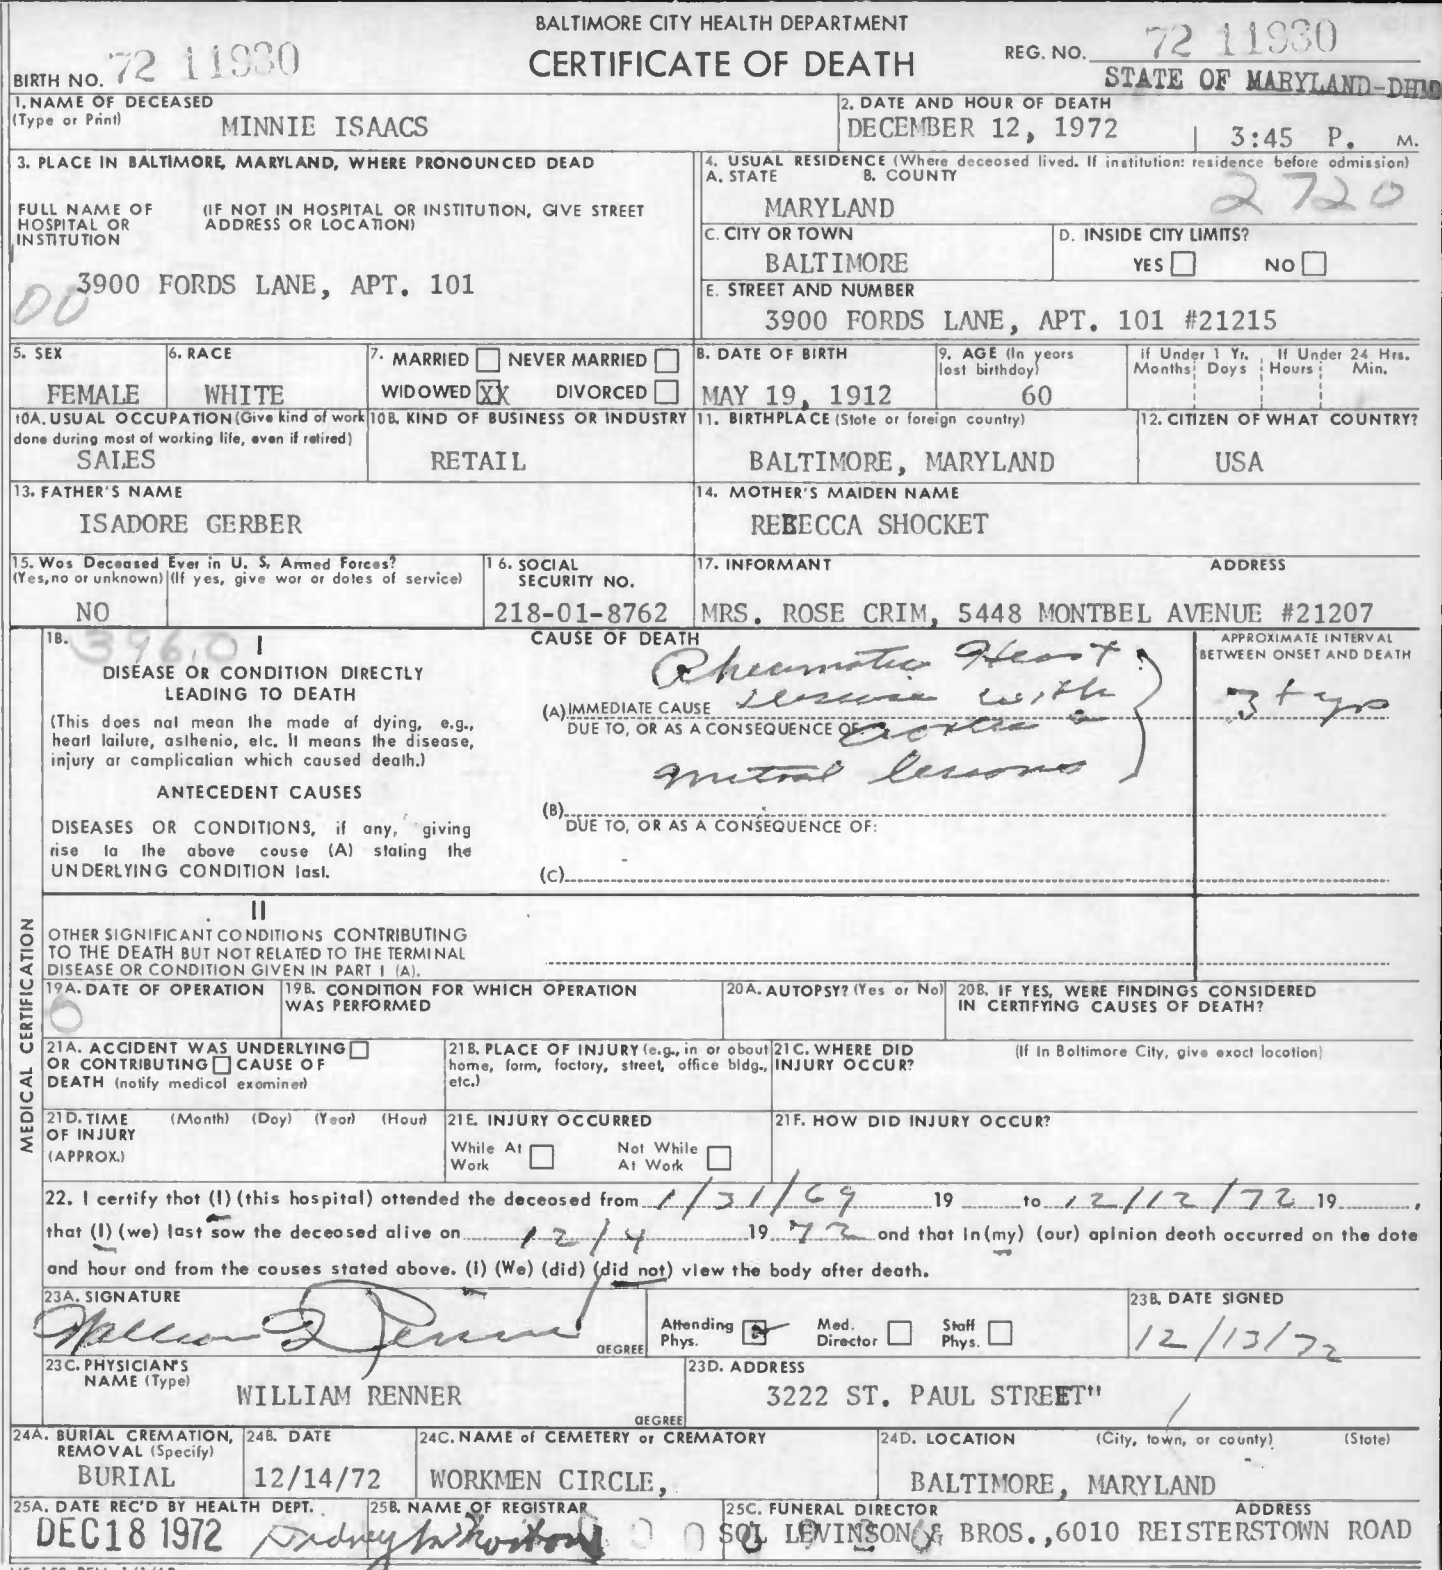 BALTIMORE CITY HEALTH DEPARTMENT
CERTIFICATE OF DEATH
BIRTH NO. 72 11930
REG. NO. 72 11930
STATE OF MARYLAND-DHMH
1. NAME OF DECEASED
(Type or Print) MINNIE ISAACS
2. DATE AND HOUR OF DEATH
DECEMBER 12, 1972 3:45 P. M.
3. PLACE IN BALTIMORE, MARYLAND, WHERE PRONOUNCED DEAD
FULL NAME OF HOSPITAL OR INSTITUTION
(IF NOT IN HOSPITAL OR INSTITUTION, GIVE STREET ADDRESS OR LOCATION)
3900 FORDS LANE, APT. 101
00
4. USUAL RESIDENCE (Where deceased lived. If institution: residence before admission)
A. STATE B. COUNTY
MARYLAND 2720
C. CITY OR TOWN
BALTIMORE
D. INSIDE CITY LIMITS?
YES NO
E. STREET AND NUMBER
3900 FORDS LANE, APT. 101 #21215
5. SEX
FEMALE
6. RACE
WHITE
7. MARRIED NEVER MARRIED
WIDOWED XX DIVORCED
8. DATE OF BIRTH
MAY 19, 1912
9. AGE (In years last birthday)
60
If Under 1 Yr. Months Days
If Under 24 Hrs. Hours Min.
10A. USUAL OCCUPATION (Give kind of work done during most of working life, even if retired)
SALES
10B. KIND OF BUSINESS OR INDUSTRY
RETAIL
11. BIRTHPLACE (State or foreign country)
BALTIMORE, MARYLAND
12. CITIZEN OF WHAT COUNTRY?
USA
13. FATHER'S NAME
ISADORE GERBER
14. MOTHER'S MAIDEN NAME
REBECCA SHOCKET
15. Was Deceased Ever in U. S. Armed Forces?
(Yes, no or unknown) (If yes, give war or dates of service)
NO
16. SOCIAL SECURITY NO.
218-01-8762
17. INFORMANT ADDRESS
MRS. ROSE CRIM, 5448 MONTBEL AVENUE #21207
MEDICAL CERTIFICATION
18. 396.0 I
DISEASE OR CONDITION DIRECTLY
LEADING TO DEATH
(This does not mean the mode of dying, e.g.,
heart failure, asthenia, etc. It means the disease,
injury or complication which caused death.)
ANTECEDENT CAUSES
DISEASES OR CONDITIONS, if any, giving
rise to the above cause (A) stating the
UNDERLYING CONDITION last.
CAUSE OF DEATH
Rheumatic Heart
(A) IMMEDIATE CAUSE disease with
DUE TO, OR AS A CONSEQUENCE OF aortic &
mitral lesions
(B)
DUE TO, OR AS A CONSEQUENCE OF:
(C)
APPROXIMATE INTERVAL
BETWEEN ONSET AND DEATH
3+ yrs
II
OTHER SIGNIFICANT CONDITIONS CONTRIBUTING
TO THE DEATH BUT NOT RELATED TO THE TERMINAL
DISEASE OR CONDITION GIVEN IN PART I (A).
19A. DATE OF OPERATION
0
19B. CONDITION FOR WHICH OPERATION WAS PERFORMED
20A. AUTOPSY? (Yes or No)
20B. IF YES, WERE FINDINGS CONSIDERED IN CERTIFYING CAUSES OF DEATH?
21A. ACCIDENT WAS UNDERLYING
OR CONTRIBUTING CAUSE OF
DEATH (notify medical examiner)
21B. PLACE OF INJURY (e.g., in or about
home, farm, factory, street, office bldg.,
etc.)
21C. WHERE DID INJURY OCCUR?
(If In Baltimore City, give exact location)
21D. TIME OF INJURY (APPROX.) (Month) (Day) (Year) (Hour)
21E. INJURY OCCURRED
While At Work Not While At Work
21F. HOW DID INJURY OCCUR?
22. I certify that (I) (this hospital) attended the deceased from 1/31/69 19 to 12/12/72 19 ,
that (I) (we) last saw the deceased alive on 12/4 19 72 and that in (my) (our) opinion death occurred on the date
and hour and from the causes stated above. (I) (We) (did) (did not) view the body after death.
23A. SIGNATURE
William Renner
DEGREE
Attending Phys. Med. Director Staff Phys.
23B. DATE SIGNED
12/13/72
23C. PHYSICIAN'S NAME (Type)
WILLIAM RENNER
DEGREE
23D. ADDRESS
3222 ST. PAUL STREET"
24A. BURIAL CREMATION, REMOVAL (Specify)
BURIAL
24B. DATE
12/14/72
24C. NAME of CEMETERY or CREMATORY
WORKMEN CIRCLE,
24D. LOCATION (City, town, or county) (State)
BALTIMORE, MARYLAND
25A. DATE REC'D BY HEALTH DEPT.
DEC 18 1972
25B. NAME OF REGISTRAR
25C. FUNERAL DIRECTOR ADDRESS
SOL LEVINSON & BROS.,6010 REISTERSTOWN ROAD